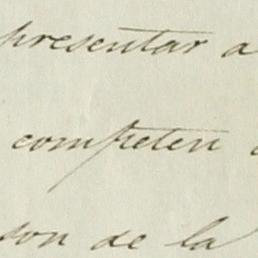 presentar a
competen
son de la